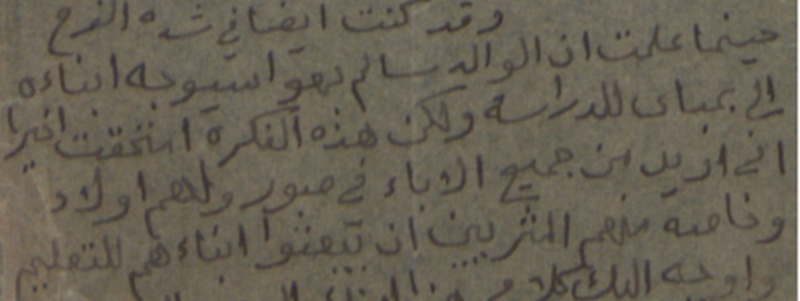 وقد كنت ايضا في شدة الفرح
حينما علمت ان الوالد سالم بهوا سيوجه ابناءه
الى بمباى للدراسة ولكن هذه الفكرة اخفقت اخيرا
اني اريد من جميع الاباء في صور ولهم اولاد
وخاصة منهم المثريين ان يبعثوا ابناءهم للتعليم
واوجه اليك